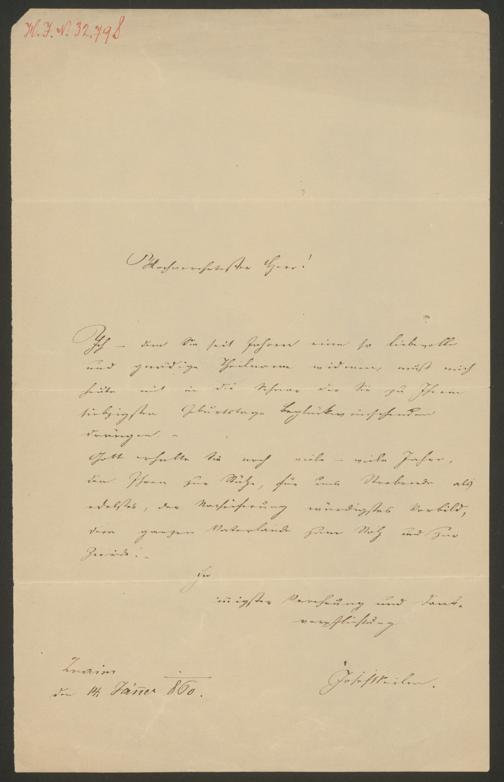 H. I. N. 32.798
Hochverehrtester Herr!
Ich – dem Sie seit Jahren eine so liebevolle
und gnädige Theilname widmen, muß mich
heute mit in die Schaar der Sie zu Ihrem
siebzigsten Geburtstage beglückwünschenden
drängen. –
Gott erhalte Sie noch viele – viele Jahre,
den Ihren zur Stütze, für uns Strebende als
edelstes, der Nacheiferung würdigstes Vorbild,
dem ganzen Vaterlande zum Stolz und zur
Freude! –
In
innigster Verehrung und Dank-
verpflichtung
Znaim
den 14 Jänner 860.
Josef Weilen.